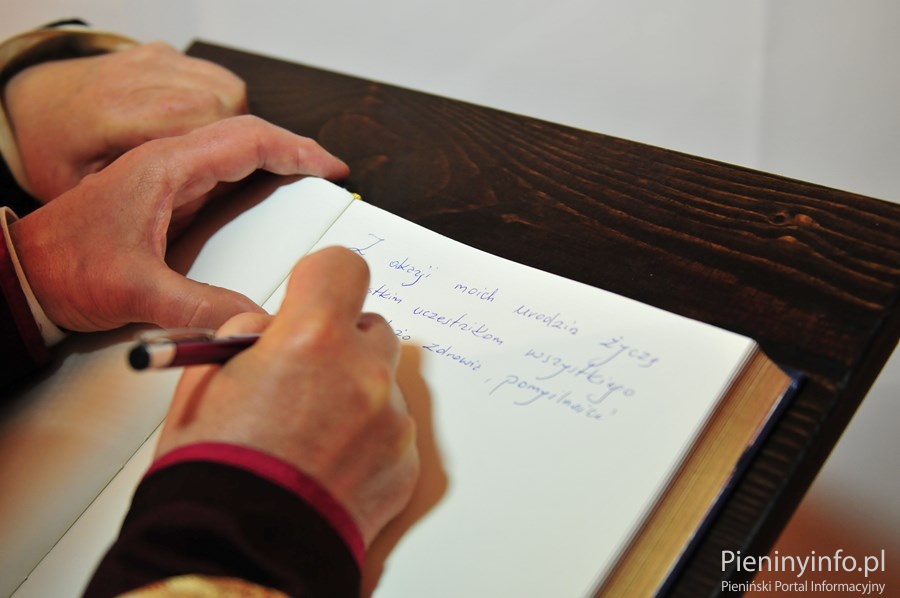 Z okazji moich urodzin życzę
uczestnikom wszystkiego
zdrowia, pomyślności
Pieninyinfo.pl
Pieniński Portal Informacyjny